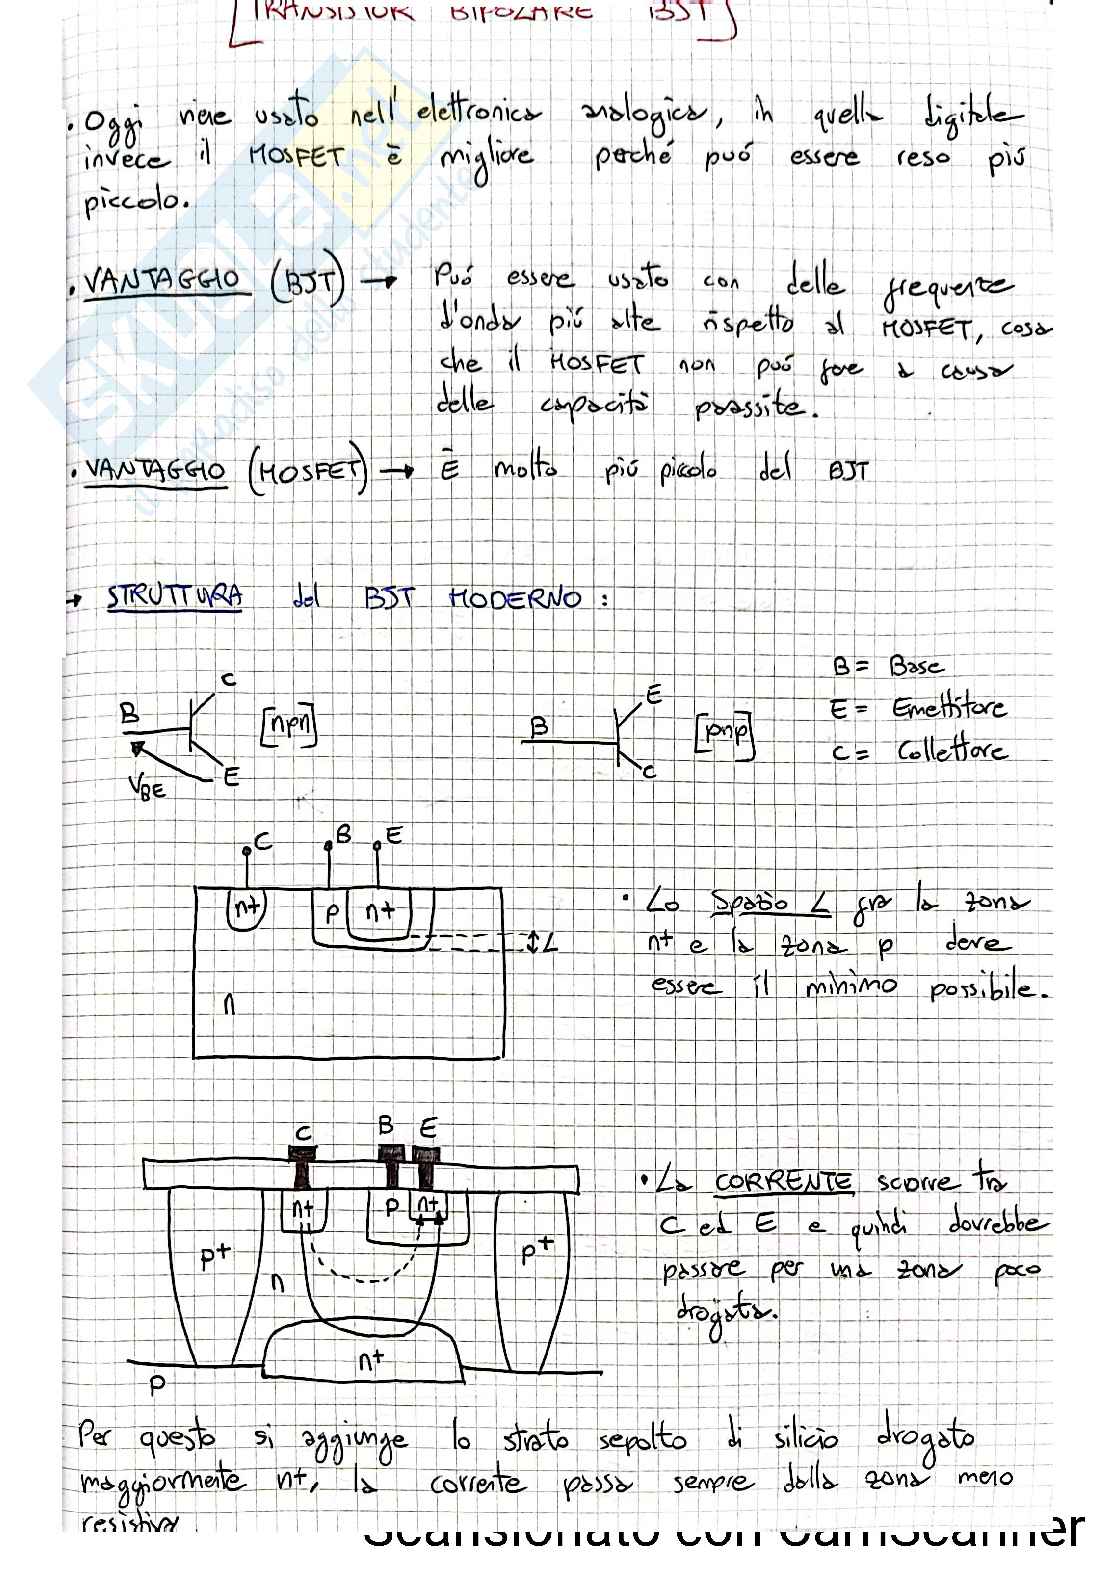 [TRANSISTOR BIPOLARE BJT]
• Oggi viene usato nell'elettronica analogica, in quella digitale
invece il MOSFET è migliore perché puó essere reso piú
piccolo.
• VANTAGGIO (BJT) → Puó essere usato con delle frequenze
d'onda piú alte rispetto al MOSFET, cosa
che il MOSFET non puó fare a causa
delle capacità parassite.
• VANTAGGIO (MOSFET) → È molto piú piccolo del BJT
→ STRUTTURA del BJT MODERNO:
B = Base
E = Emettitore
C = Collettore
C
B
[npn]
E
VBE
E
B
[pnp]
C
C
B
E
n+
p
n+
L
n
• Lo Spazio L fra la zona
n+ e la zona p deve
essere il minimo possibile.
C
B
E
n+
p
n+
p+
n
p+
n+
p
• La CORRENTE scorre tra
C ed E e quindi dovrebbe
passare per una zona poco
drogata.
Per questo si aggiunge lo strato sepolto di silicio drogato
maggiormente n+, la corrente passa sempre dalla zona meno
resistiva
Scansionato con CamScanner
SKUOLA.net